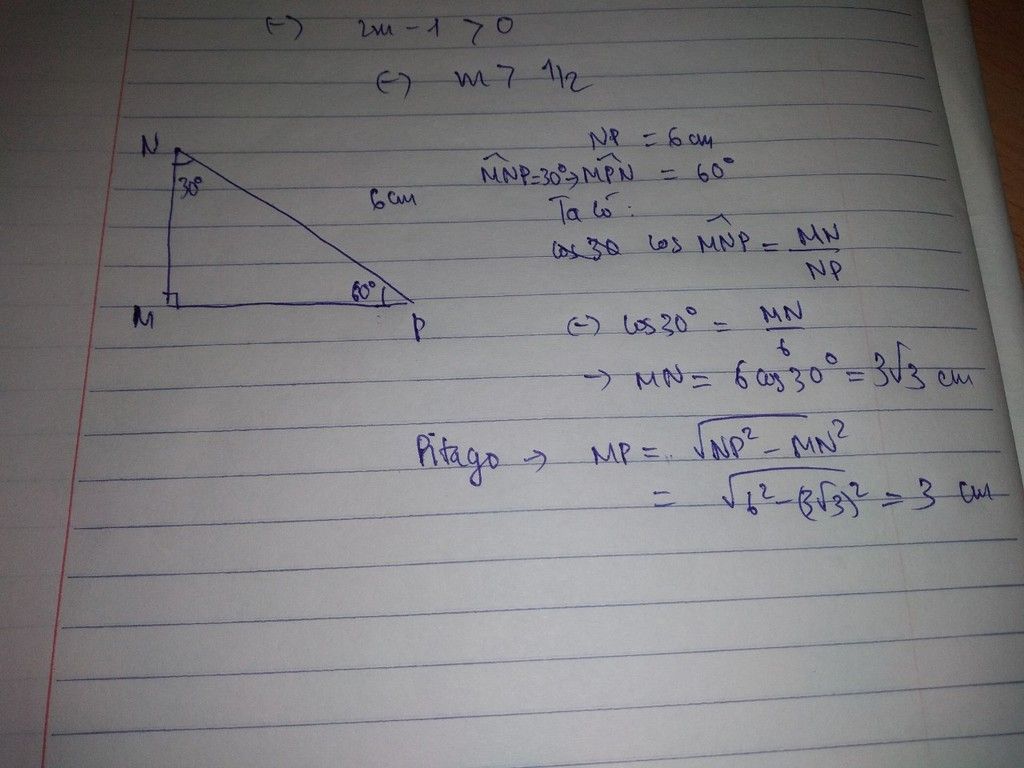 (-) 2m - 1 > 0
(-) m > 1/2
N
30°
6cm
M
60°
P
NP = 6cm
M̂NP=30° → M̂PN = 60°
Ta có:
cos30 cos M̂NP = MN/NP
(-) cos30° = MN/6
→ MN = 6cos30° = 3√3 cm
Pitago → MP = √NP² - MN²
= √6² - (3√3)² = 3 cm